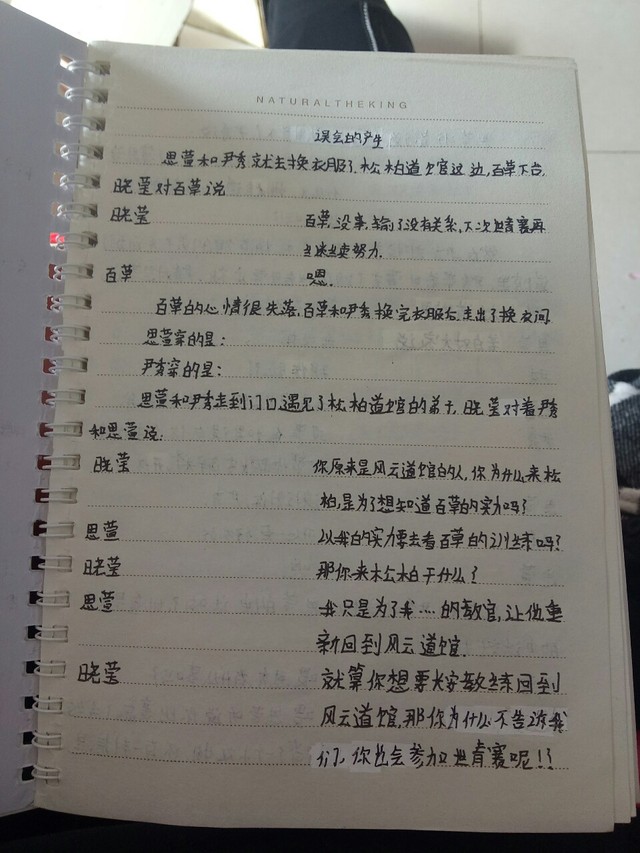 NATURALTHEKING
误会的产生
思萱和尹秀就去换衣服了.松柏道馆这边,百草下台,
晓莹对百草说
晓莹 百草,没事,输了没有关系,下次世青赛再
努力.
百草 嗯.
百草的心情很失落,百草和尹秀换完衣服后.走出了换衣间
思萱穿的是:
尹秀穿的是:
思萱和尹秀走到门口,遇见了松柏道馆的弟子,晓莹对着尹秀
和思萱说:
晓莹 你原来是风云道馆的人,你为什么来松
柏,是为了想知道百草的实力吗?
思萱 以我的实力要去看百草的训练吗?
晓莹 那你来松柏干什么?
思萱 我只是为了我…的教官,让他重
新回到风云道馆.
晓莹 就算你想要长安教练回到
风云道馆,那你为什么不告诉我
们,你也会参加世青赛呢!?